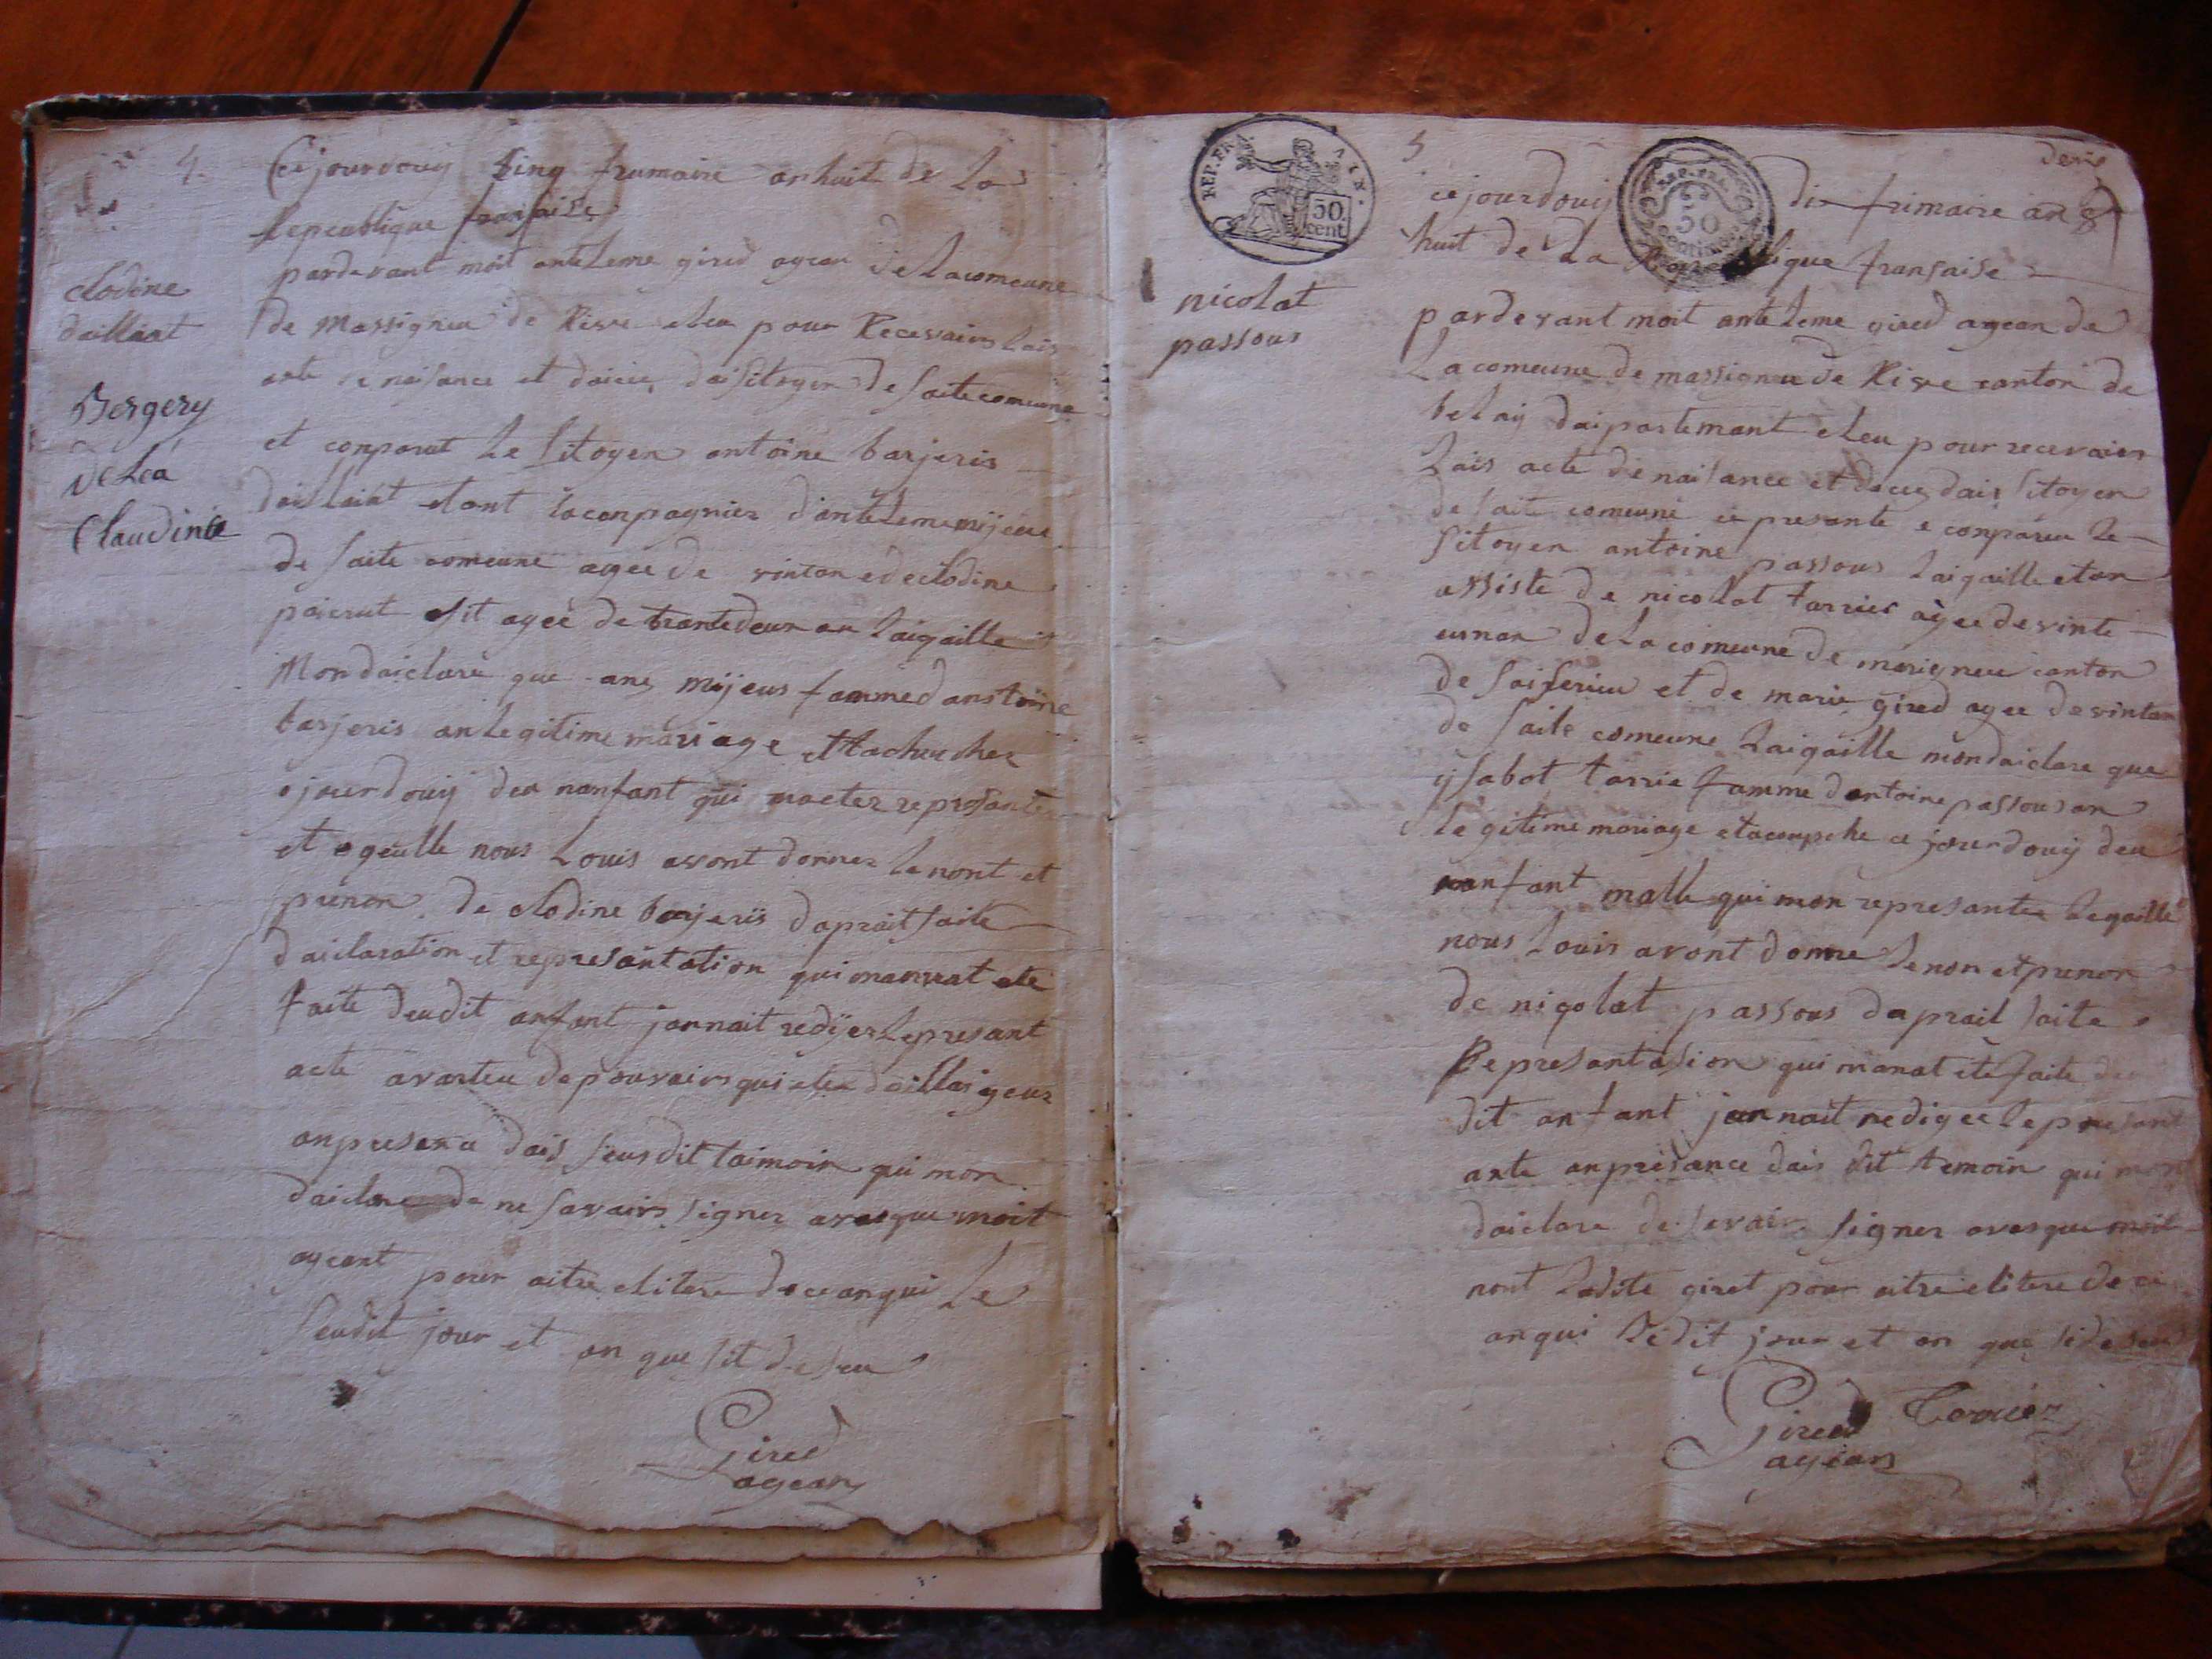 4.
Cejourdouy sinq frumaire anhuit de La
Republique franſaise
pardevant moit anteleme gired agean de Lacomeune
de Massignieu de Rive eleu pour Recevairs Lais
acte de naisance et daicé daisitoyen de saite comeune
et conparut Le sitoyen antoine barjeris
daillaint etant saconpagnier d'anteleme mijeus
de saite comeune agee de vintan e declodine
paierut osit agée de trantedeux an Laigaille
Mon daiclaré que ane mijeus famme d'anstoine
barjeris an Legitime mariage ettachouchee
ojourdouy deu nanfant qui maetez represante
et ageulle nous Louis avont donner Lenont et
prenon de clodine barjeris daprait saite
daiclaration et represantation qui manvat ete
faite deudit anfant jannait redijer Lepresant
acte avarteu de pouvairs qui deillaigeur
anpresance dais seusdit taimoin qui mon
daiclare de ne savairs signer avesque moit
ageant pour aitre elitere de ce anqui Le
seudit jour et an que sit deseu
Gired
agean
clodine
daillant
Bergery
dela
Claudine
REP. FRA. AIN.
50.
cent.
REP. FRA.
50
centimes
5
cejourdouy dix frimaire an 8
huit de La Republique franſaise
nicolat
passous
pardevant moit anteleme gired agean de
Lacomeune de massignieu de Rive canton de
belay daipartemant eleu pour recevairs
Lais acte de naisance et decez dais sitoyen
de saite comeune ce presante e conpareu Le
sitoyen antoine passous Laigaille etan
assiste de nicolat tarrier agee de vinte
eunan de La comeune de marigneu canton
de saiserieu et de marie gired agee de vintan
de saite comeune Laigaille mondaiclare que
ysabot tarrie famme dantoine passous an
Legitime mariage etacoupche ce jourdouy deu
nanfant malle qui mon represantee Legaille
nous Louis avont donne Lenon et prenon
de nigolat passous daprait saite
Represantasion qui manat ete faite deu
dit anfant jannait redigee Lepresant
ante anpresance dais dit temoin qui mon
daiclare de savairs signer avesque moit
nont Ladite giret pour aitre elitere de ce
anqui Ledit jour et an que si deseu
Gired Tarrier
agean